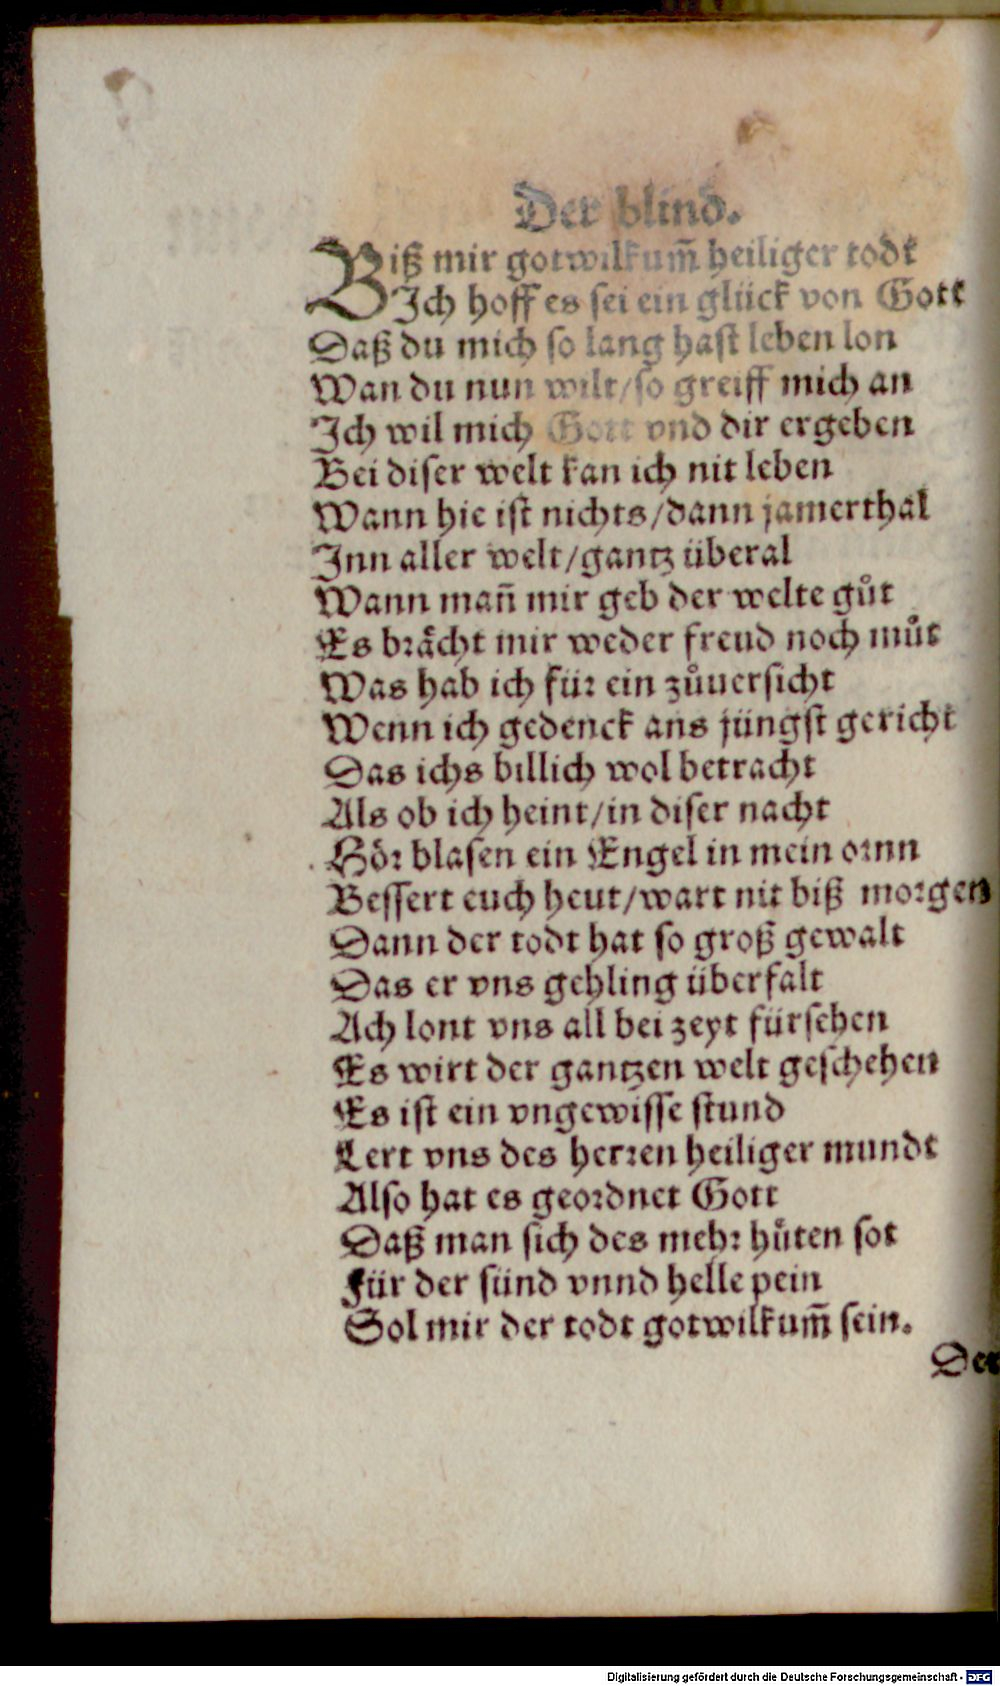 Der blind.
Biß mir gotwilkum̃ heiliger todt
Ich hoff es sei ein glück von Gott
Daß du mich so lang hast leben lon
Wan du nun wilt/so greiff mich an
Ich wil mich Gott vnd dir ergeben
Bei diser welt kan ich nit leben
Wann hie ist nichts/dann jamerthal
Inn aller welt/gantz überal
Wann mañ mir geb der welte gůt
Es brächt mir weder freud noch můt
Was hab ich für ein zůuersicht
Wenn ich gedenck ans jüngst gericht
Das ichs billich wol betracht
Als ob ich heint/in diser nacht
Hör blasen ein Engel in mein ornn
Bessert euch heut/wart nit biß morgen
Dann der todt hat so groß gewalt
Das er vns gehling überfalt
Ach lont vns all bei zeyt fürsehen
Es wirt der gantzen welt geschehen
Es ist ein vngewisse stund
Lert vns des herren heiliger mundt
Also hat es geordnet Gott
Daß man sich des mehr hůten sot
Für der sünd vnnd helle pein
Sol mir der todt gotwilkum̃ sein.
Der
Digitalisierung gefördert durch die Deutsche Forschungsgemeinschaft - DFG